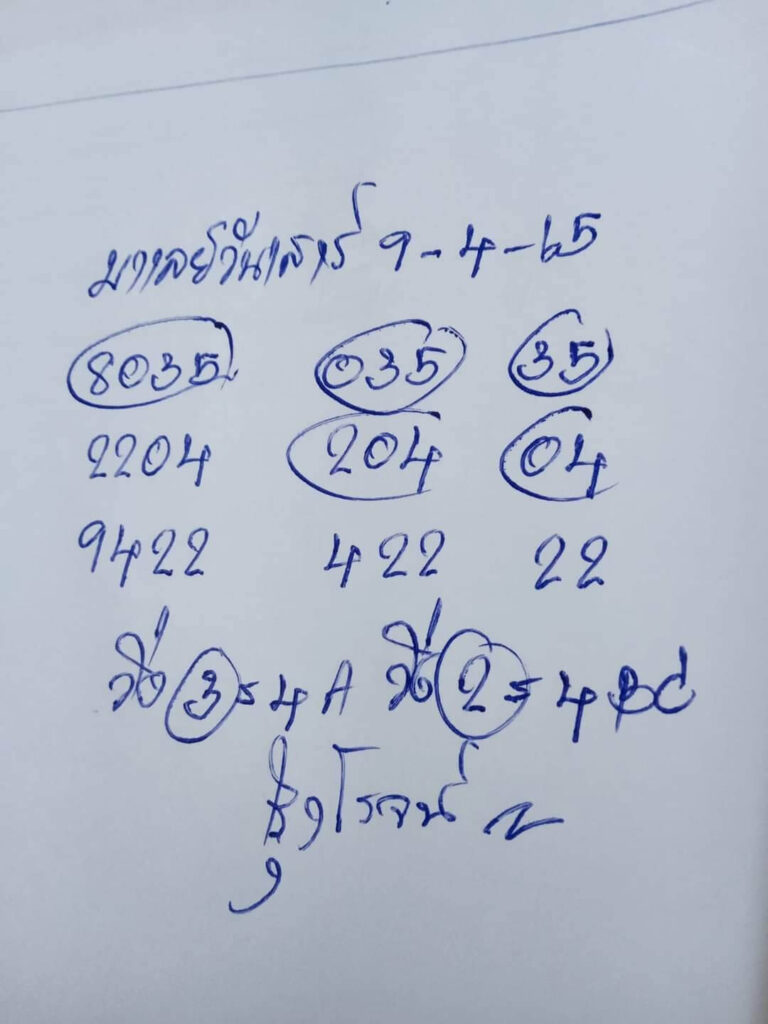 มาเลย์วันเสาร์ 9-4-65
8035 035 35
2204 204 04
9422 422 22
วิ่ง 3 = 4 A วิ่ง 2 = 4 B C
รุ่งโรจน์